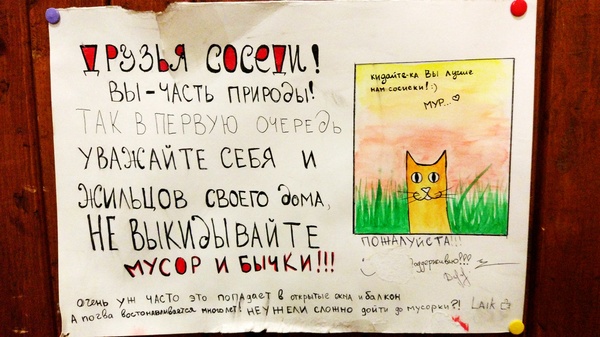 ДРУЗЬЯ СОСЕДИ!
ВЫ-ЧАСТЬ ПРИРОДЫ!
ТАК В ПЕРВУЮ ОЧЕРЕДЬ
УВАЖАЙТЕ СЕБЯ И
ЖИЛЬЦОВ СВОЕГО ДОМА,
НЕ ВЫКИДЫВАЙТЕ
МУСОР И БЫЧКИ!!!
кидайте-ка Вы лучше
нам-сосиски!:)
МУР...
ПОЖАЛУЙСТА!!!
Поддерживаю!!!
очень уж часто это попадает в открытые окна и балкон
А почва востанавливается много лет! НЕУЖЕЛИ СЛОЖНО ДОЙТИ ДО МУСОРКИ?!
LAIK